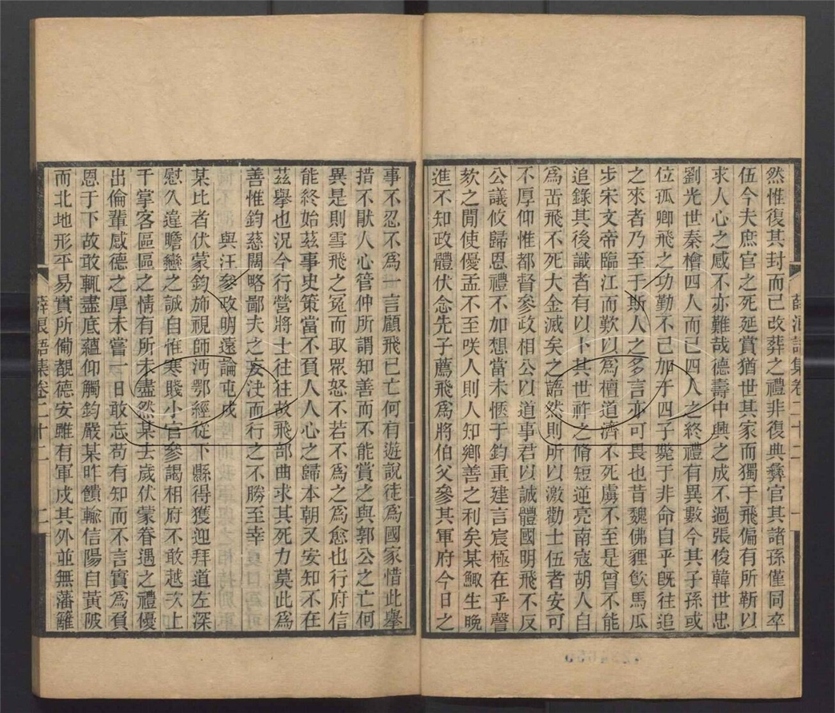 然惟復其封而已改葬之禮非復典彝官其諸孫僅同卒
伍今夫庶官之死延賞猶世其家而獨于飛偏有所靳以
求人心之感不亦難哉德壽中興之成不過張俊韓世忠
劉光世秦檜四人而已四人之終禮有異數今其子孫或
位孤卿飛之功勤不已加于四子斃于非命自乎既往追
之來者乃至于斯人之多言亦可畏也昔魏佛貍飲馬瓜
步宋文帝臨江而歎以爲檀道濟不死虜不至是曾不能
追錄其後識者有以卜其世祚之脩短逆亮南寇胡人自
爲岳飛不死大金滅矣之語然則所以激勸士伍者安可
不厚仰惟都督參政相公以道事君以誠體國明飛不反
公議攸歸恩禮不加想當未愜于鈞重建言宸極在乎謦
欬之閒使優孟不至咲人則人知鄉善之利矣某鯫生晚
進不知政體伏念先子薦飛爲將伯父參其軍府今日之
事不忍不爲一言顧飛已亡何有遊說徒爲國家惜此舉
措不猒人心管仲所謂知善而不能賞之與郭公之亡何
異是則雪飛之冤而取眾怒不若不爲之爲愈也行府信
能終始茲事史策當不負人人心之歸本朝又安知不在
茲舉也況今行營將士往往故飛部曲求其死力莫此爲
善惟鈞慈闊略鄙夫之妄決而行之不勝至幸
與汪參政明遠論屯戍
某比者伏蒙鈞旆視師沔鄂經從下縣得獲迎拜道左深
慰久違瞻戀之誠自惟寒賤小官參謁相府不敢越次上
干掌客區區之情有所未盡然某去歲伏蒙眷遇之禮優
出倫輩感德之厚未嘗一日敢忘苟有知而不言實爲負
恩于下故敢輒盡底蘊仰觸鈞嚴某昨饋輸信陽自黃陂
而北地形平易實所備覩德安雖有軍戍其外並無藩籬
薛浪語集卷二十二 二